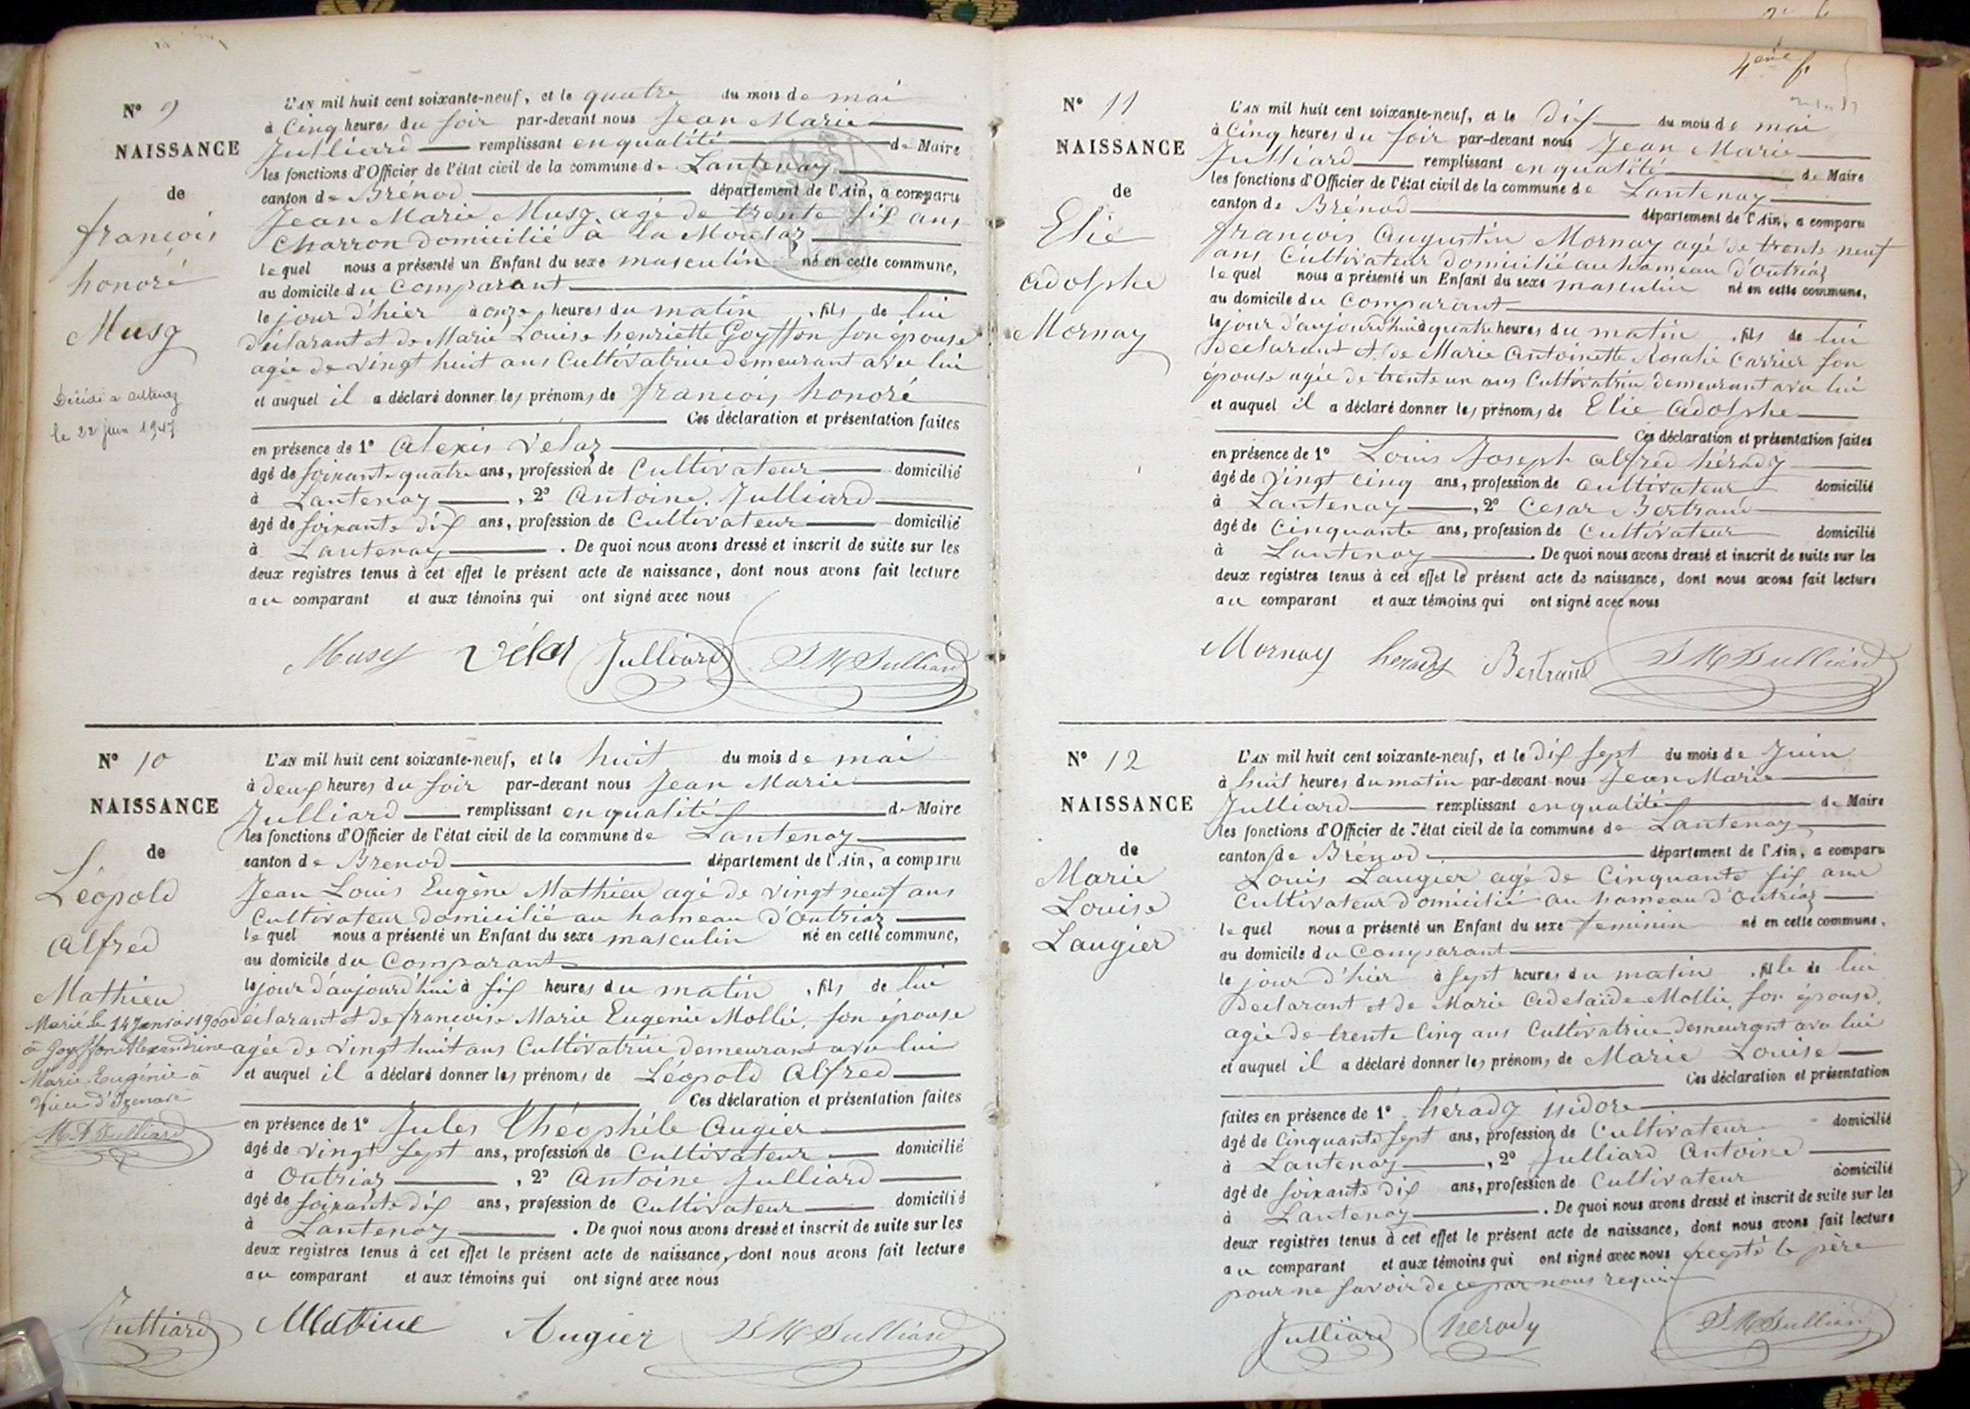 N° 9
NAISSANCE
de
françois
honoré
Musy
Décédé a
le 22 juin 1947
L'AN mil huit cent soixante-neuf, et le quatre du mois de mai
à Cinq heures du soir par-devant nous Jean Marie
Julliard remplissant en qualité de Maire
les fonctions d'Officier de l'état civil de la commune de Lantenay
canton de Brénod département de l'Ain, a comparu
Jean Marie Musy agé de trente six ans
Charron domicilié a
lequel nous a présenté un Enfant du sexe masculin né en cette commune,
au domicile du Comparant
le jour d'hier à onze heures du matin, fils de lui
déclarant et de Marie Louise henriette Goyffon son épouse
agée de vingt huit ans Cultivatrice demeurant avec lui
et auquel il a déclaré donner les prénoms de françois honoré
Ces déclaration et présentation faites
en présence de 1° Alexis Velaz
âgé de soixante quatre ans, profession de Cultivateur domicilié
à Lantenay, 2° Antoine Julliard
âgé de soixante dix ans, profession de Cultivateur domicilié
à Lantenay. De quoi nous avons dressé et inscrit de suite sur les
deux registres tenus à cet effet le présent acte de naissance, dont nous avons fait lecture
au comparant et aux témoins qui ont signé avec nous
Musy Vélas Julliard J M Julliard
N° 10
NAISSANCE
de
Léopold
Alfred
Mathieu
Marié le 14 Janvier 1900
à Goyffon Alexandrine
Marie Eugénie à
Vieu d'Izenave
Julliard
L'AN mil huit cent soixante-neuf, et le huit du mois de mai
à deux heures du soir par-devant nous Jean Marie
Julliard remplissant en qualité de Maire
les fonctions d'Officier de l'état civil de la commune de Lantenay
canton de Brenod département de l'Ain, a comparu
Jean Louis Eugène Mathieu agé de vingt neuf ans
Cultivateur domicilié au hameau d'Outriaz
lequel nous a présenté un Enfant du sexe masculin né en cette commune,
au domicile du Comparant
le jour d'aujourd'hui à six heures du matin, fils de lui
déclarant et de francoise Marie Eugenie Mollié, son épouse
agée de vingt huit ans Cultivatrice demeurant avec lui
et auquel il a déclaré donner les prénoms de Léopold Alfred
Ces déclaration et présentation faites
en présence de 1° Jules Théophile Augier
âgé de vingt sept ans, profession de Cultivateur domicilié
à Outriaz, 2° Antoine Julliard
âgé de soixante dix ans, profession de Cultivateur domicilié
à Lantenay. De quoi nous avons dressé et inscrit de suite sur les
deux registres tenus à cet effet le présent acte de naissance, dont nous avons fait lecture
au comparant et aux témoins qui ont signé avec nous
Julliard Augier J M Julliard
4ème f.
N° 11
NAISSANCE
de
Elie
adolphe
Mornay
L'AN mil huit cent soixante-neuf, et le dix du mois de mai
à Cinq heures du soir par-devant nous Jean Marie
Julliard remplissant en qualité de Maire
les fonctions d'Officier de l'état civil de la commune de Lantenay
canton de Brénod département de l'Ain, a comparu
françois Augustin Mornay agé de trente neuf
ans Cultivateur domicilié au hameau d'Outriaz
lequel nous a présenté un Enfant du sexe masculin né en cette commune,
au domicile du Comparant
le jour d'aujourd'hui à quatre heures du matin, fils de lui
declarant et de Marie Antoinette Rosalie Carrier son
épouse agée de trente un ans Cultivatrice demeurant avec lui
et auquel il a déclaré donner les prénoms de Elie Adolphe
Ces déclaration et présentation faites
en présence de 1° Louis Joseph Alfred hérady
âgé de vingt cinq ans, profession de cultivateur domicilié
à Lantenay, 2° Cesar Bertrand
âgé de Cinquante ans, profession de Cultivateur domicilié
à Lantenay. De quoi nous avons dressé et inscrit de suite sur les
deux registres tenus à cet effet le présent acte de naissance, dont nous avons fait lecture
au comparant et aux témoins qui ont signé avec nous
Mornay herady Bertrand J M Julliard
N° 12
NAISSANCE
de
Marie
Louise
Laugier
L'AN mil huit cent soixante-neuf, et le dix sept du mois de Juin
à huit heures du matin par-devant nous Jean Marie
Julliard remplissant en qualité de Maire
les fonctions d'Officier de l'état civil de la commune de Lantenay
canton de Brénod département de l'Ain, a comparu
Louis Laugier agé de Cinquante six ans
Cultivateur domicilié au hameau d'Outriaz
lequel nous a présenté un Enfant du sexe feminin né en cette commune,
au domicile du Comparant
le jour d'hier à sept heures du matin, fille de lui
declarant et de Marie Adelaïde Mollié, son épouse,
agée de trente cinq ans Cultivatrice demeurant avec lui
et auquel il a déclaré donner les prénoms de Marie Louise
Ces déclaration et présentation
faites en présence de 1° hérady isidore
âgé de Cinquante sept ans, profession de Cultivateur domicilié
à Lantenay, 2° Julliard Antoine
âgé de soixante dix ans, profession de Cultivateur domicilié
à Lantenay. De quoi nous avons dressé et inscrit de suite sur les
deux registres tenus à cet effet le présent acte de naissance, dont nous avons fait lecture
au comparant et aux témoins qui ont signé avec nous excepté le père
pour ne savoir de ce par nous requis
Julliard herady J M Julliard